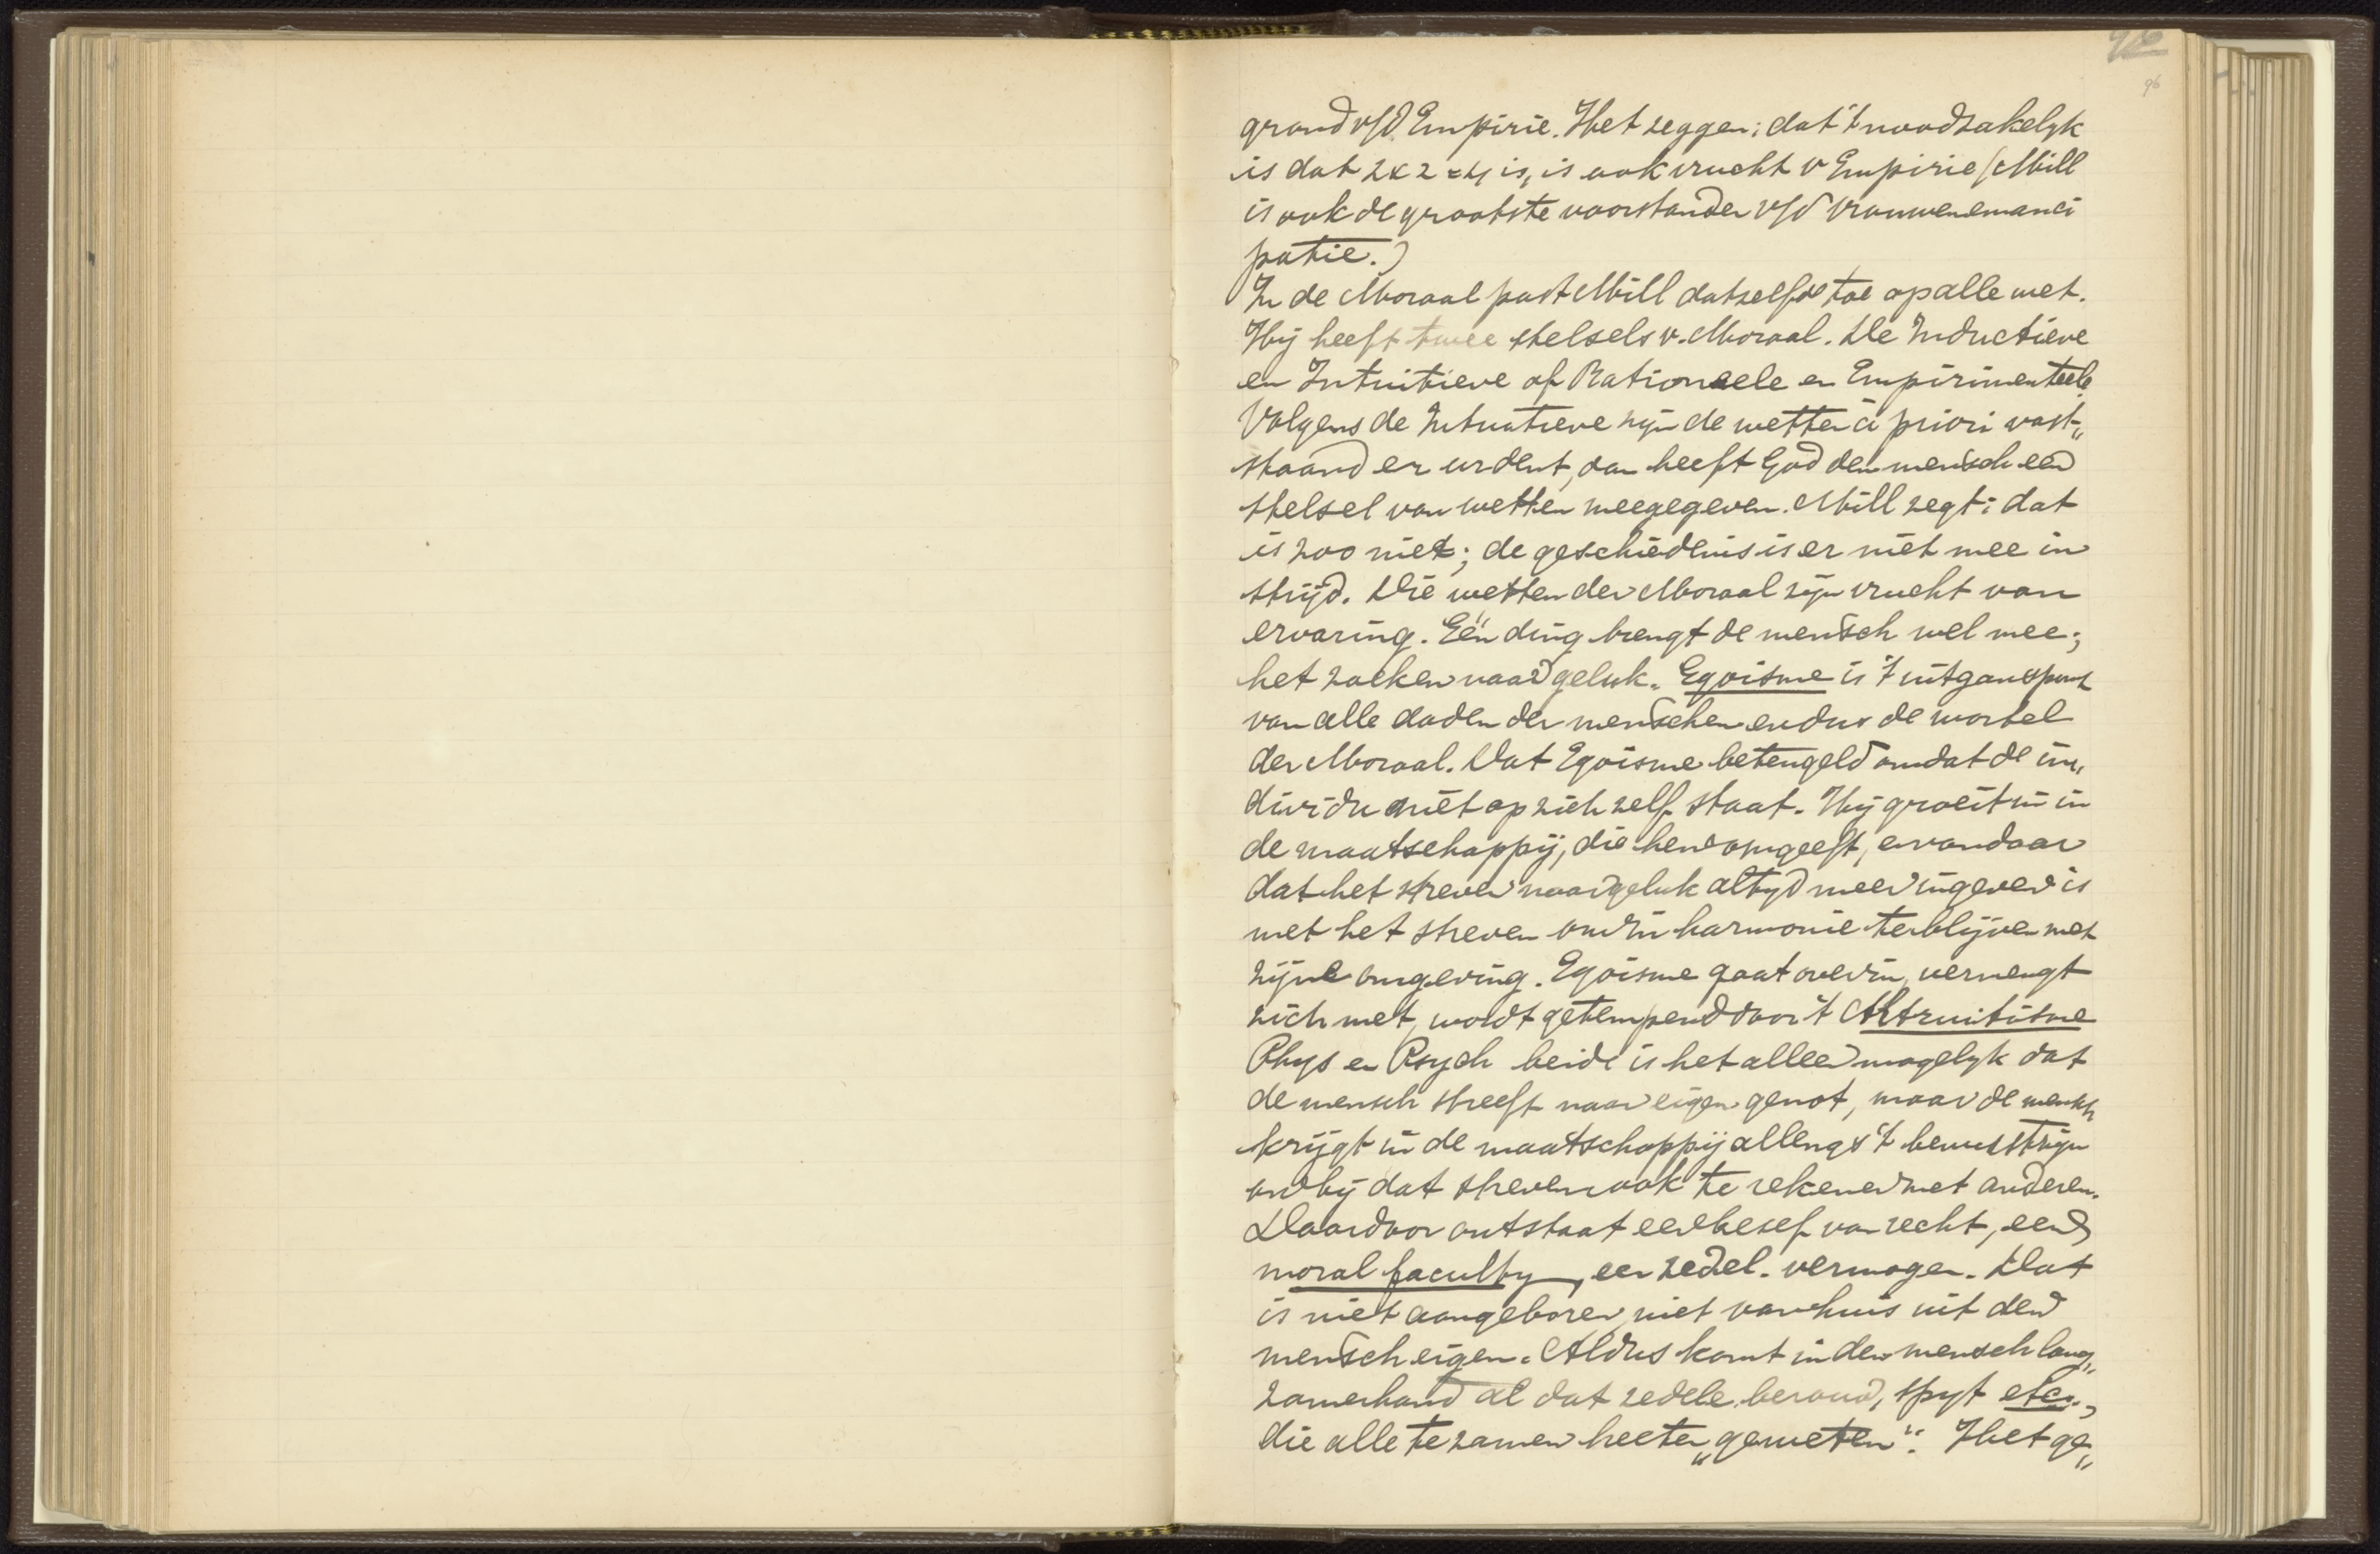 96
96
grond v/d Empirie. Het zeggen: dat 't noodzakelyk
is dat 2 x 2 = 4 is, is ook vrucht v Empirie (Mill
is ook de grootste voorstander v/d vrouwenemanci
patie.)
In de Moraal past Mill datzelfde toe op alle wet.
Hij heeft twee stelsels v. Moraal. De Inductieve
en Intuitieve of Rationeele en Empirimenteele.
Volgens de Intuatieve zijn de wetten à priori vast„
staand en evident, dan heeft God den mensch een
stelsel van wetten meegegeven. Mill zegt: dat
is zoo niet; de geschiedenis is er niet mee in
strijd. Die wetten der Moraal zijn vrucht van
ervaring. Eén ding brengt de mensch wel mee;
het zoeken naar geluk. Egoisme is 't uitganspunt
van alle daden der menschen en dus de wortel
der Moraal. Dat Egoisme beteugeld omdat de in„
dividu niet op zich zelf staat. Hij groeit in in
de maatschappij, die hem omgeeft, en vandaar
dat het streven naar geluk altyd meer ingeven is
met het streven om in harmonie te blijven met
zijne omgeving. Egoisme gaat over in, vermengt
zich met, wordt getemperd door 't Altruitisme
Phys en Psych beide is het alleen mogelyk dat
de mensch streeft naar eigen genot, maar de mensch
krijgt in de maatschappij allengs 't bewustzijn
om bij dat streven ook te rekenen met anderen.
Daardoor ontstaat een besef van recht, een
moral faculty, een zedel. vermogen. Dat
is niet aangeboren, niet van huis uit den
mensch eigen. Aldus komt in den mensch lang„
zamerhand al dat zedele. berouw, spyt etc.,
die alle te zamen heeten „geweten". Het ge„